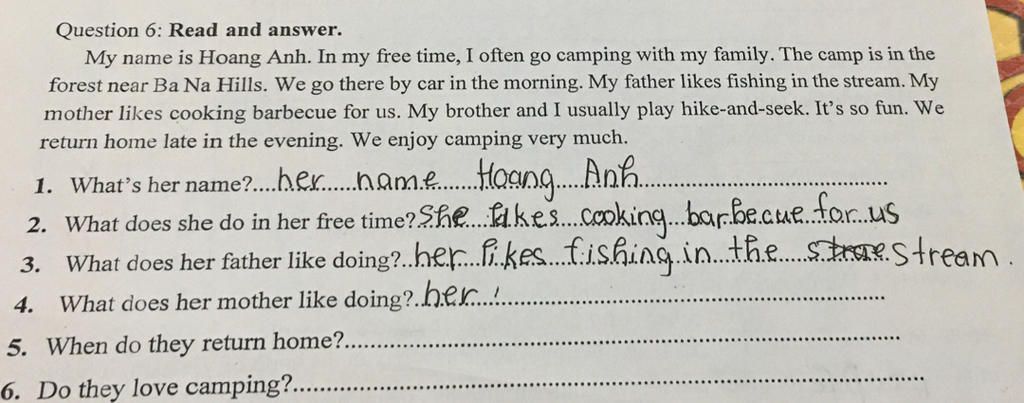 Question 6: Read and answer.
My name is Hoang Anh. In my free time, I often go camping with my family. The camp is in the
forest near Ba Na Hills. We go there by car in the morning. My father likes fishing in the stream. My
mother likes cooking barbecue for us. My brother and I usually play hike-and-seek. It's so fun. We
return home late in the evening. We enjoy camping very much.
1. What's her name?....her......name.......Hoang....Anh..............................................
2. What does she do in her free time? She....likes....cooking...barbecue..for..us
3. What does her father like doing?..her...likes...fishing.in...the.....stream.
4. What does her mother like doing?.her...........................................................................
5. When do they return home?.........................................................................................
6. Do they love camping?....................................................................................................